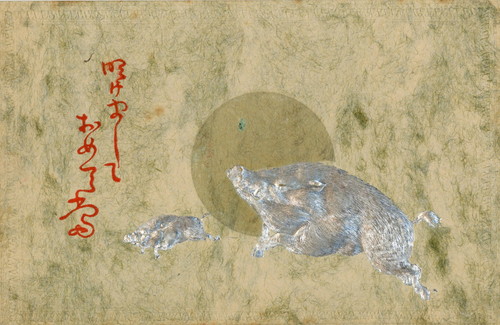 明けまして
おめてたう